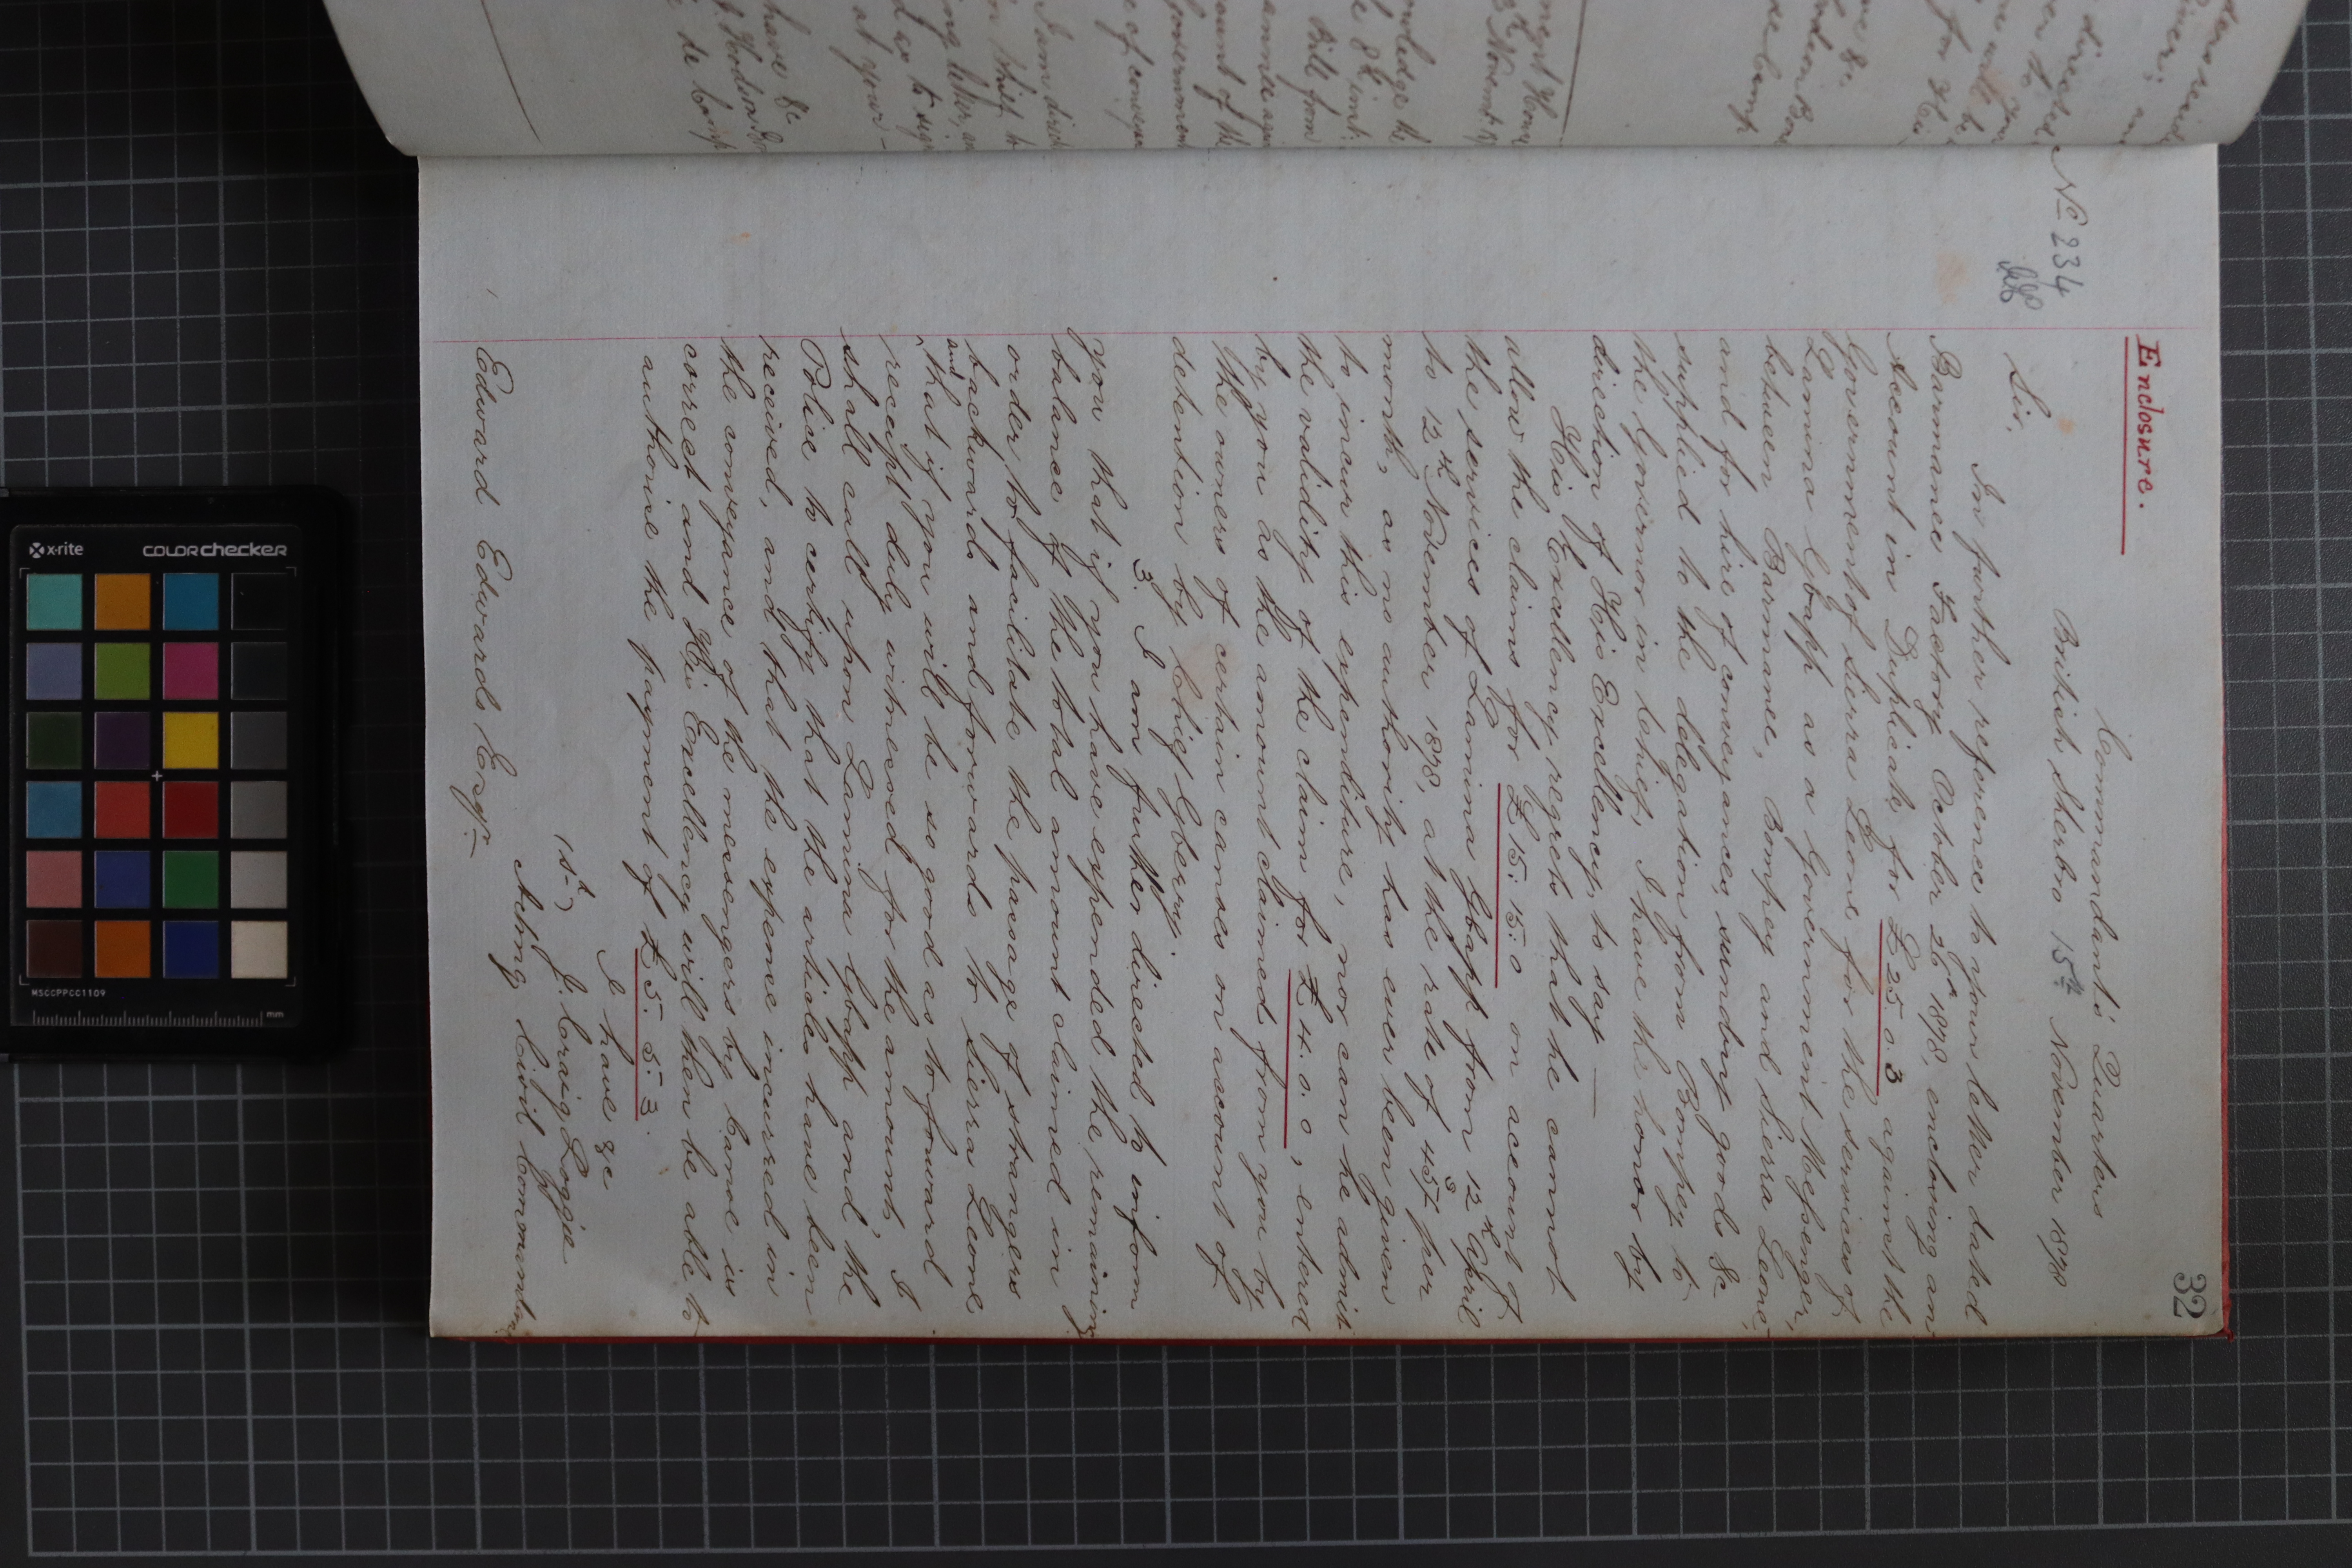 32
Enclosure.
Commandant's Quarters
No 234
British Sherbro 15th November 1878
Sir,
In further reference to your letter dated
Barmance Factory October 26th 1878, enclosing an
Account in Duplicate for £25. 0. 3 against the
Government of Sierra Leone for the services of
Lamina Gbapp as a Government Messenger,
between Barmance, Bompey and Sierra Leone,
and for hire of conveyances, sundry goods &c
supplied to the delegation from Bompey to
the Governor in Chief, I have the honor by
direction of His Excellency, to say —
His Excellency regrets that he cannot
allow the claims for £15. 15. 0 on account of
the services of Lamina Gbapp from 12th April
to 12th November 1878, at the rate of 45/- per
month, as no authority has ever been given
to incur this expenditure, nor can he admit
the validity of the claim for £4. 0. 0, entered
by you as the amount claimed from you by
the owners of certain canoes on account of
detention by Chief Gberry.
3. I am further directed to inform
you that if you have expended the remaining
balance of the total amount claimed in
order to facilitate the passage of strangers
backwards and forwards to Sierra Leone
and that if you will be so good as to forward
receipt duly witnessed for the amounts, I
shall call upon Lamina Gbapp and the
Police to certify that the articles have been
received, and that the expense incurred in
the conveyance of the messengers by Canoe is
correct and His Excellency will then be able to
authorise the payment of £5. 5. 3.
I have &c
(sd) J. Craig Loggie
Acting Civil Commandant
Edward Edwards Esqr
x-rite
colorchecker
MSCCPPCC1109
mm